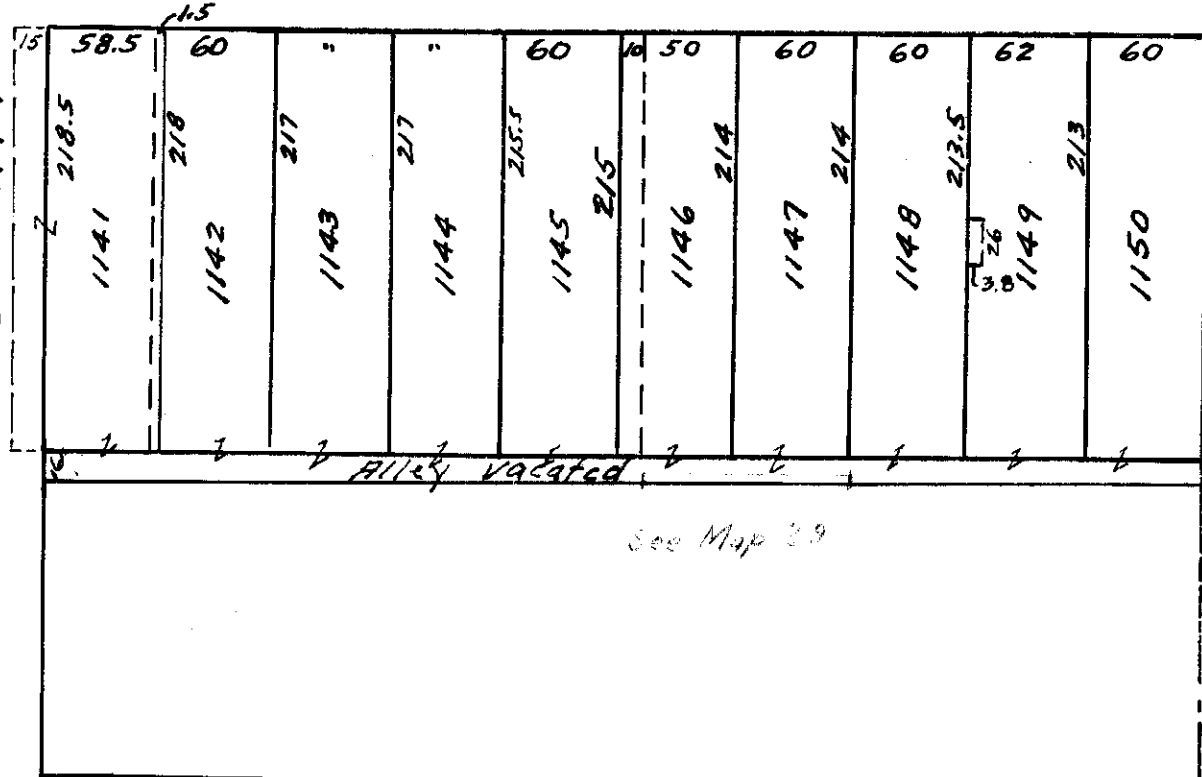 1.5
15 58.5 60 " " 60 10 50 60 60 62 60
218.5 218 217 217 215.5 215 214 214 213.5 213
26
3.8
1141 1142 1143 1144 1145 1146 1147 1148 1149 1150
Alley vacated
See Map 29